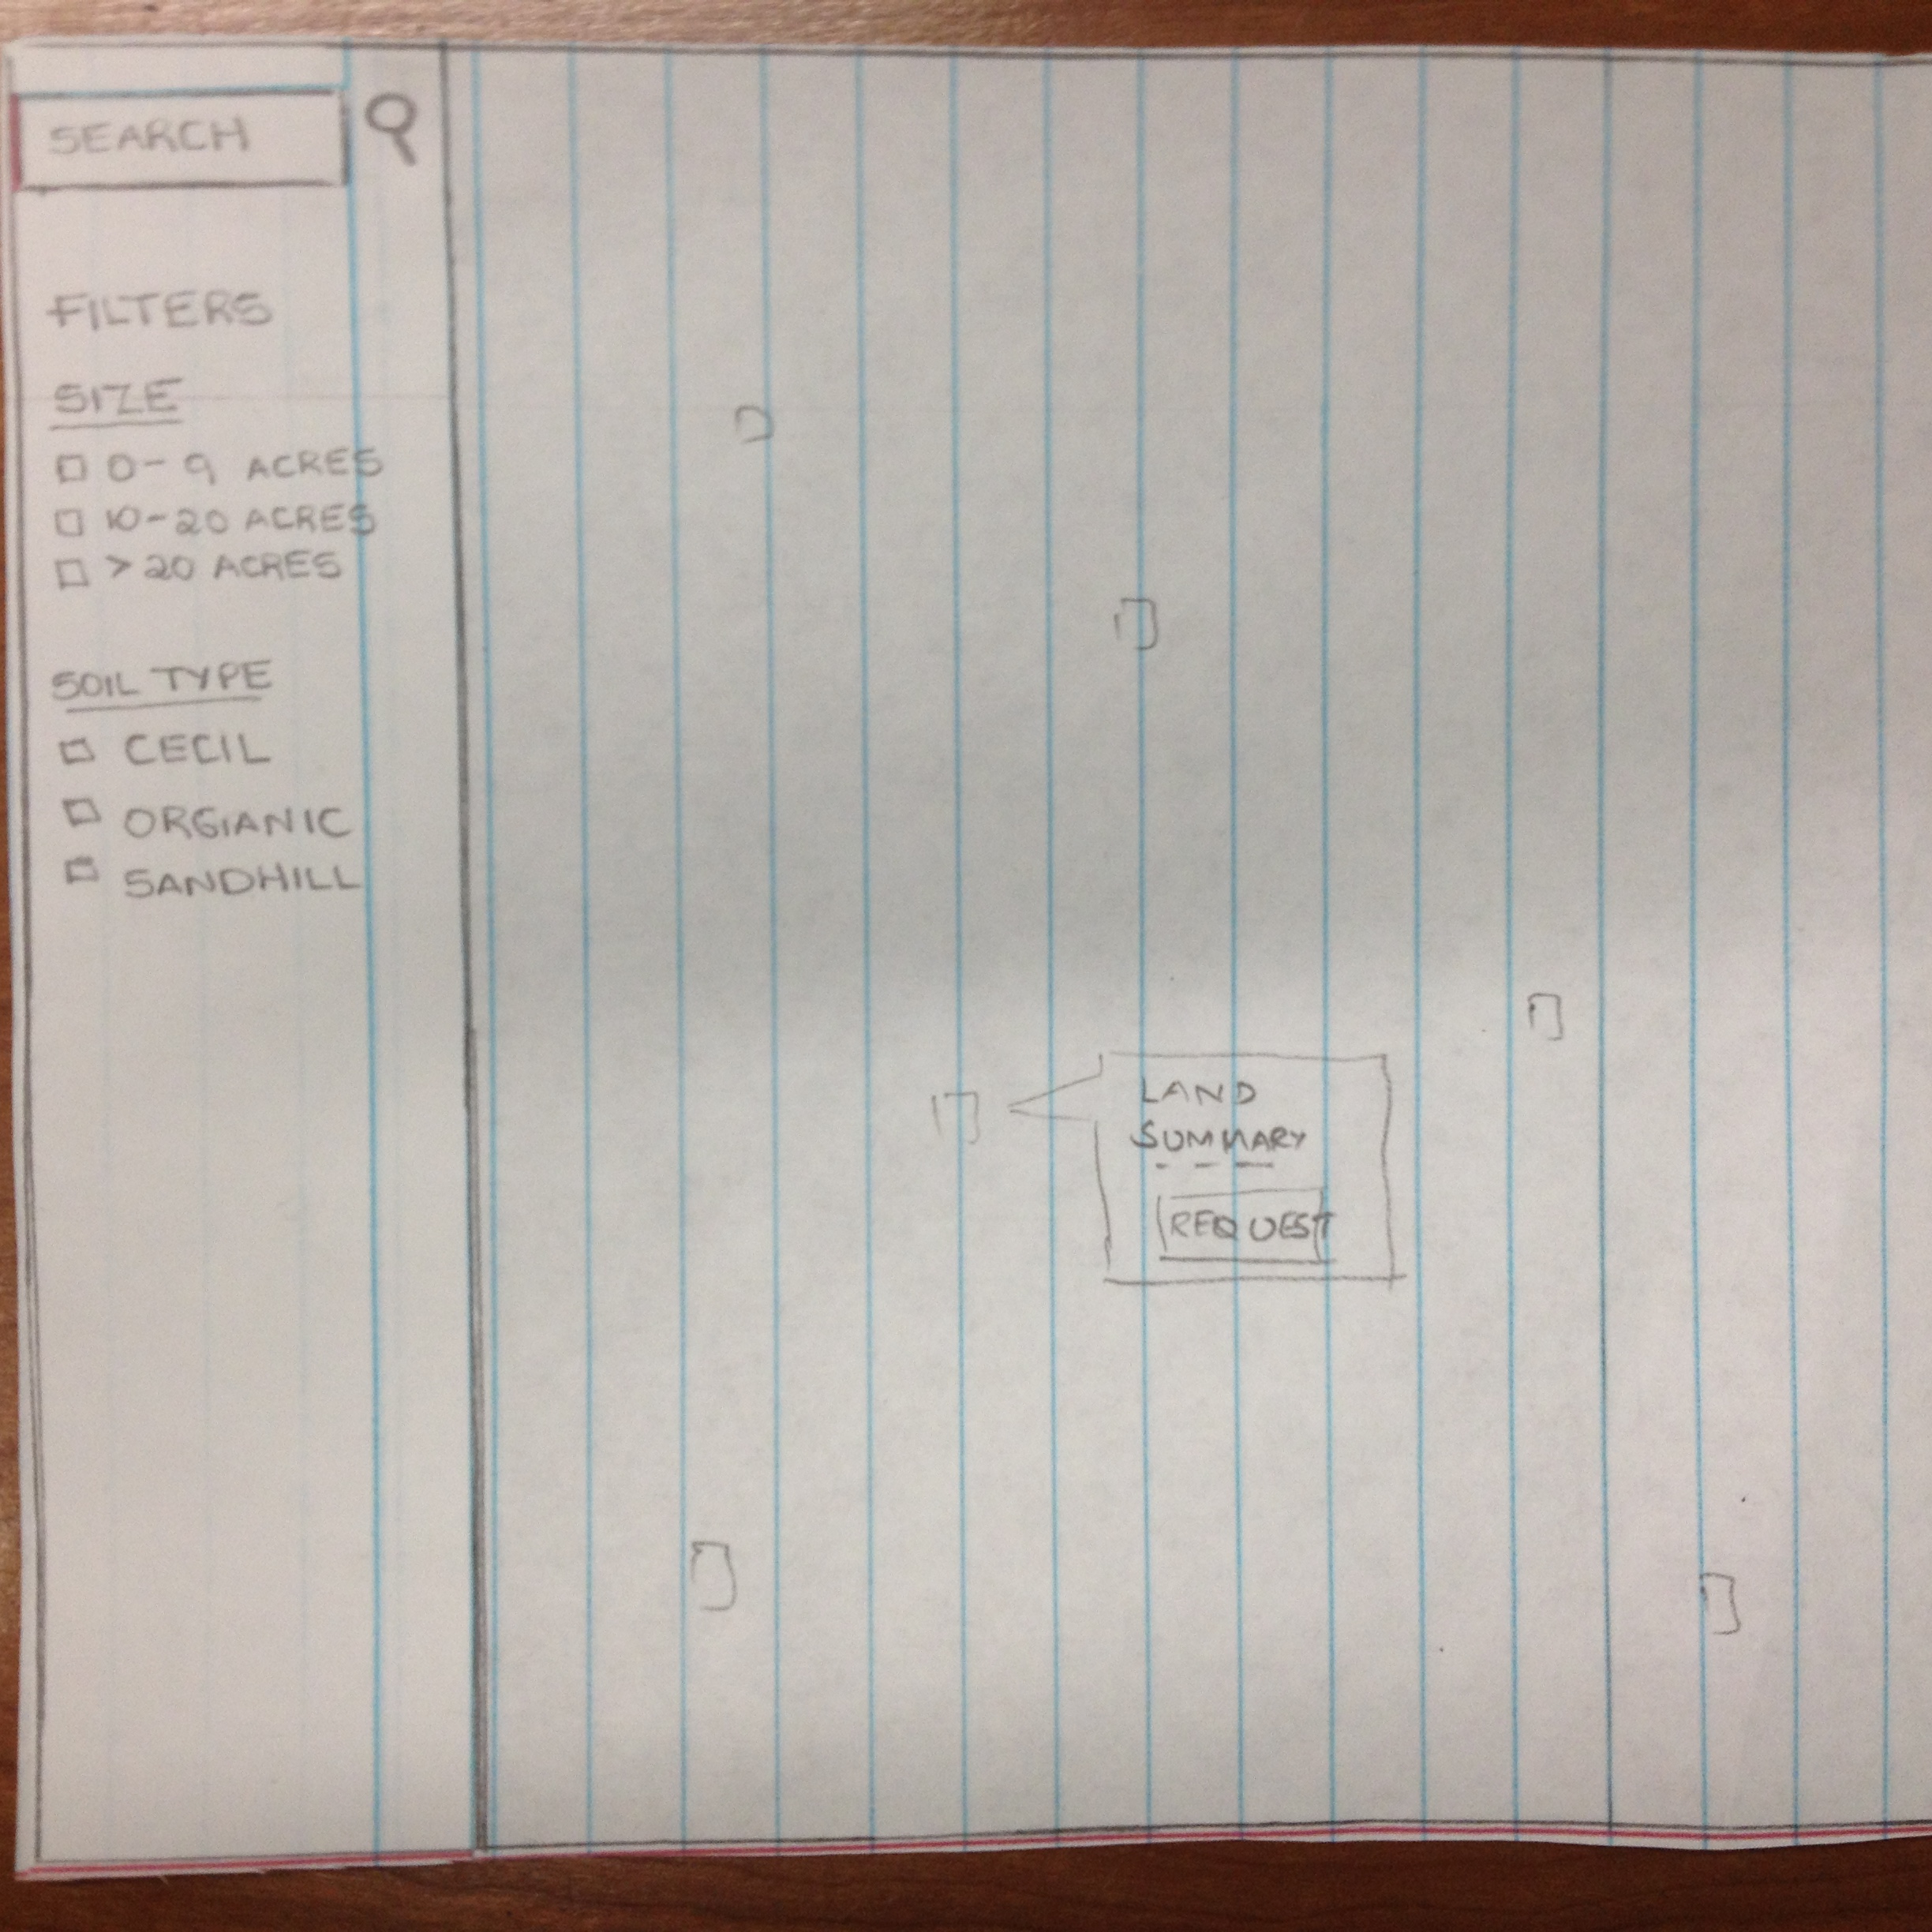 SEARCH
FILTERS
SIZE
0-9 ACRES
10-20 ACRES
>20 ACRES
SOIL TYPE
CECIL
ORGIANIC
SANDHILL
LAND
SUMMARY
REQUEST